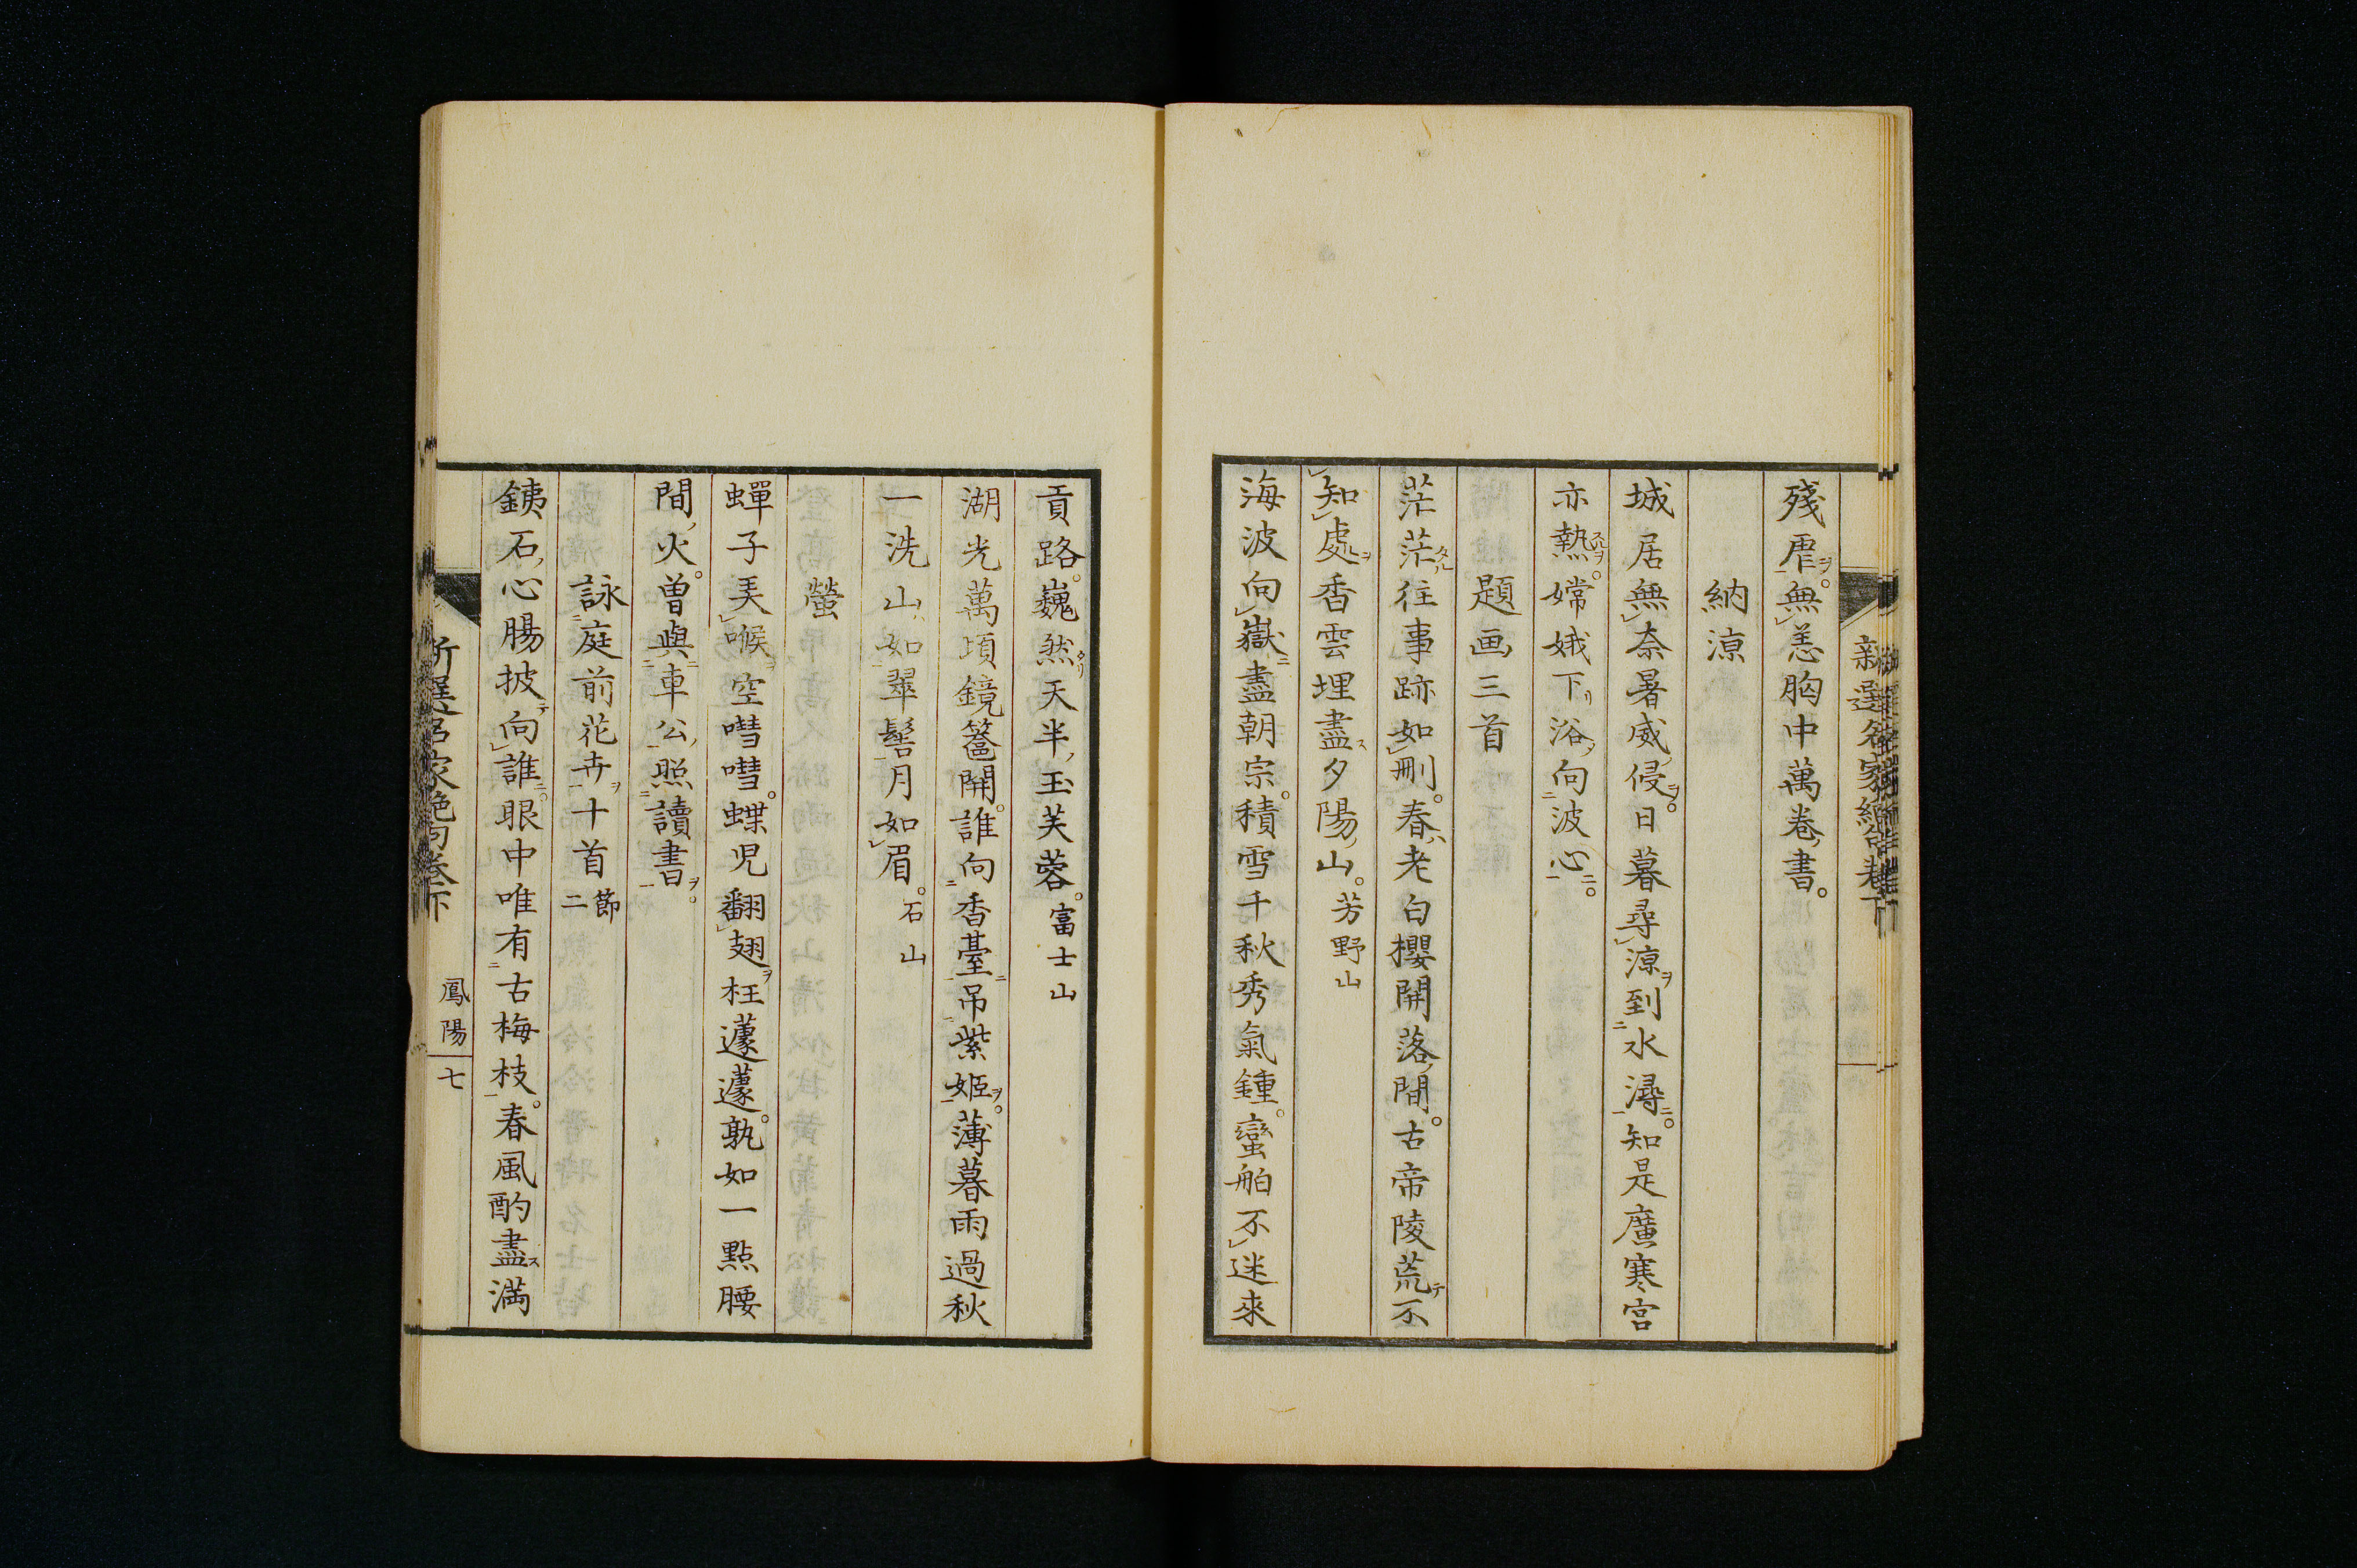 殘虐ヲ。無恙胸中萬巻ノ書。
納涼
城居無奈暑威ノ侵ヲ。日暮尋涼ヲ到水潯ニ。知是廣寒宮
亦熱スルヲ。嫦娥下リ浴ノ向波心ニ。
題画三首
茫茫タル往事跡如刪。春ハ老白櫻開落ノ間。古帝陵荒テ不
知處ヲ香雲埋盡ス夕陽ノ山。芳野山
海波向嶽ニ盡朝宗。積雪千秋秀氣鍾。蠻舶不迷來
貢路。巍然タリ天半ノ玉芙蓉。富士山
湖光萬頃鏡奩開。誰向香臺ニ吊紫姬ヲ。薄暮雨過秋
一洗山ハ如翠髻月如眉。石山
螢
蟬子美喉ヲ空嘒嘒。蝶児翻翅ヲ枉蘧蘧。孰如一點腰
間ノ火。曽與車公ノ照讀書ヲ。
詠庭前花卉ヲ十首節二
銕石ノ心腸披テ向誰ニ。眼中唯有古梅枝。春風酌盡ス満
新選名家絶句巻下
鳳陽
七